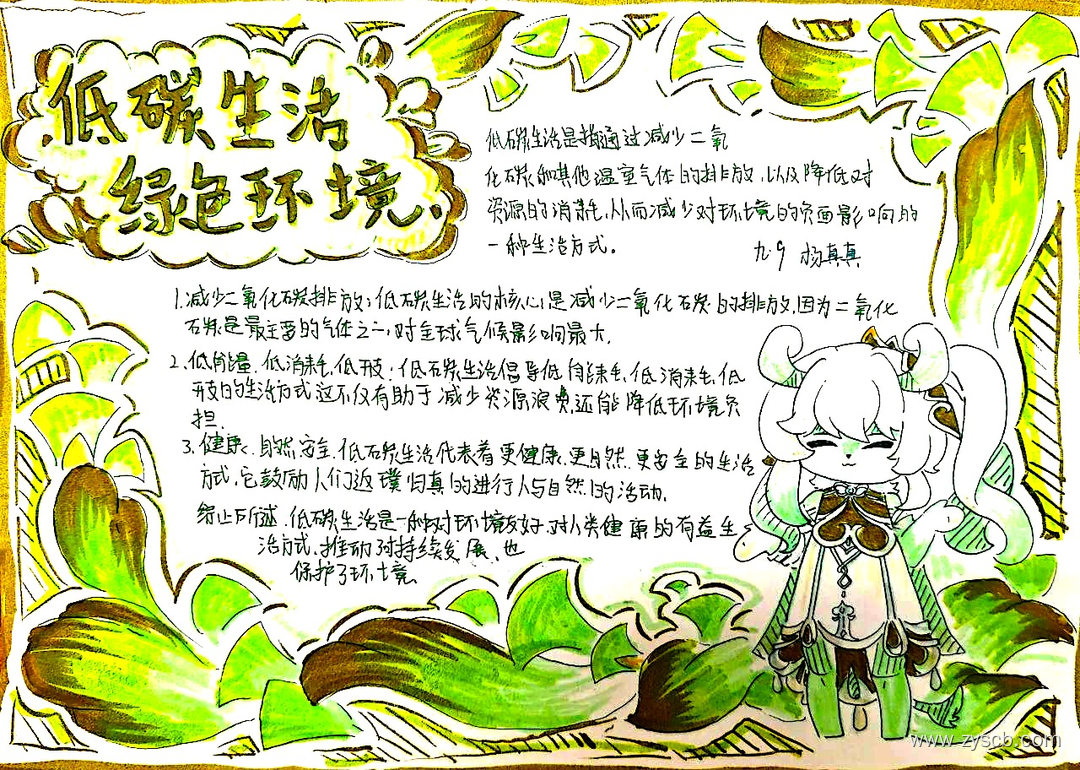 低碳生活
绿色环境
低碳生活是指通过减少二氧
化碳和其他温室气体的排放,以及降低对
资源的消耗,从而减少对环境的负面影响的
一种生活方式。
九9 杨真真
1.减少二氧化碳排放:低碳生活的核心是减少二氧化碳的排放,因为二氧化
碳是最主要的气体之一,对全球气候影响最大.
2.低能量、低消耗、低开支:低碳生活倡导低能耗、低消耗、低
开支的生活方式这不仅有助于减少资源浪费,还能降低环境负
担.
3.健康、自然、安全.低碳生活代表着更健康、更自然、更安全的生活
方式,它鼓励人们返璞归真的进行人与自然的活动.
综上所述,低碳生活是一种对环境友好、对人类健康的有益生
活方式,推动了持续发展、也
保护了环境.
www.zyscb.com